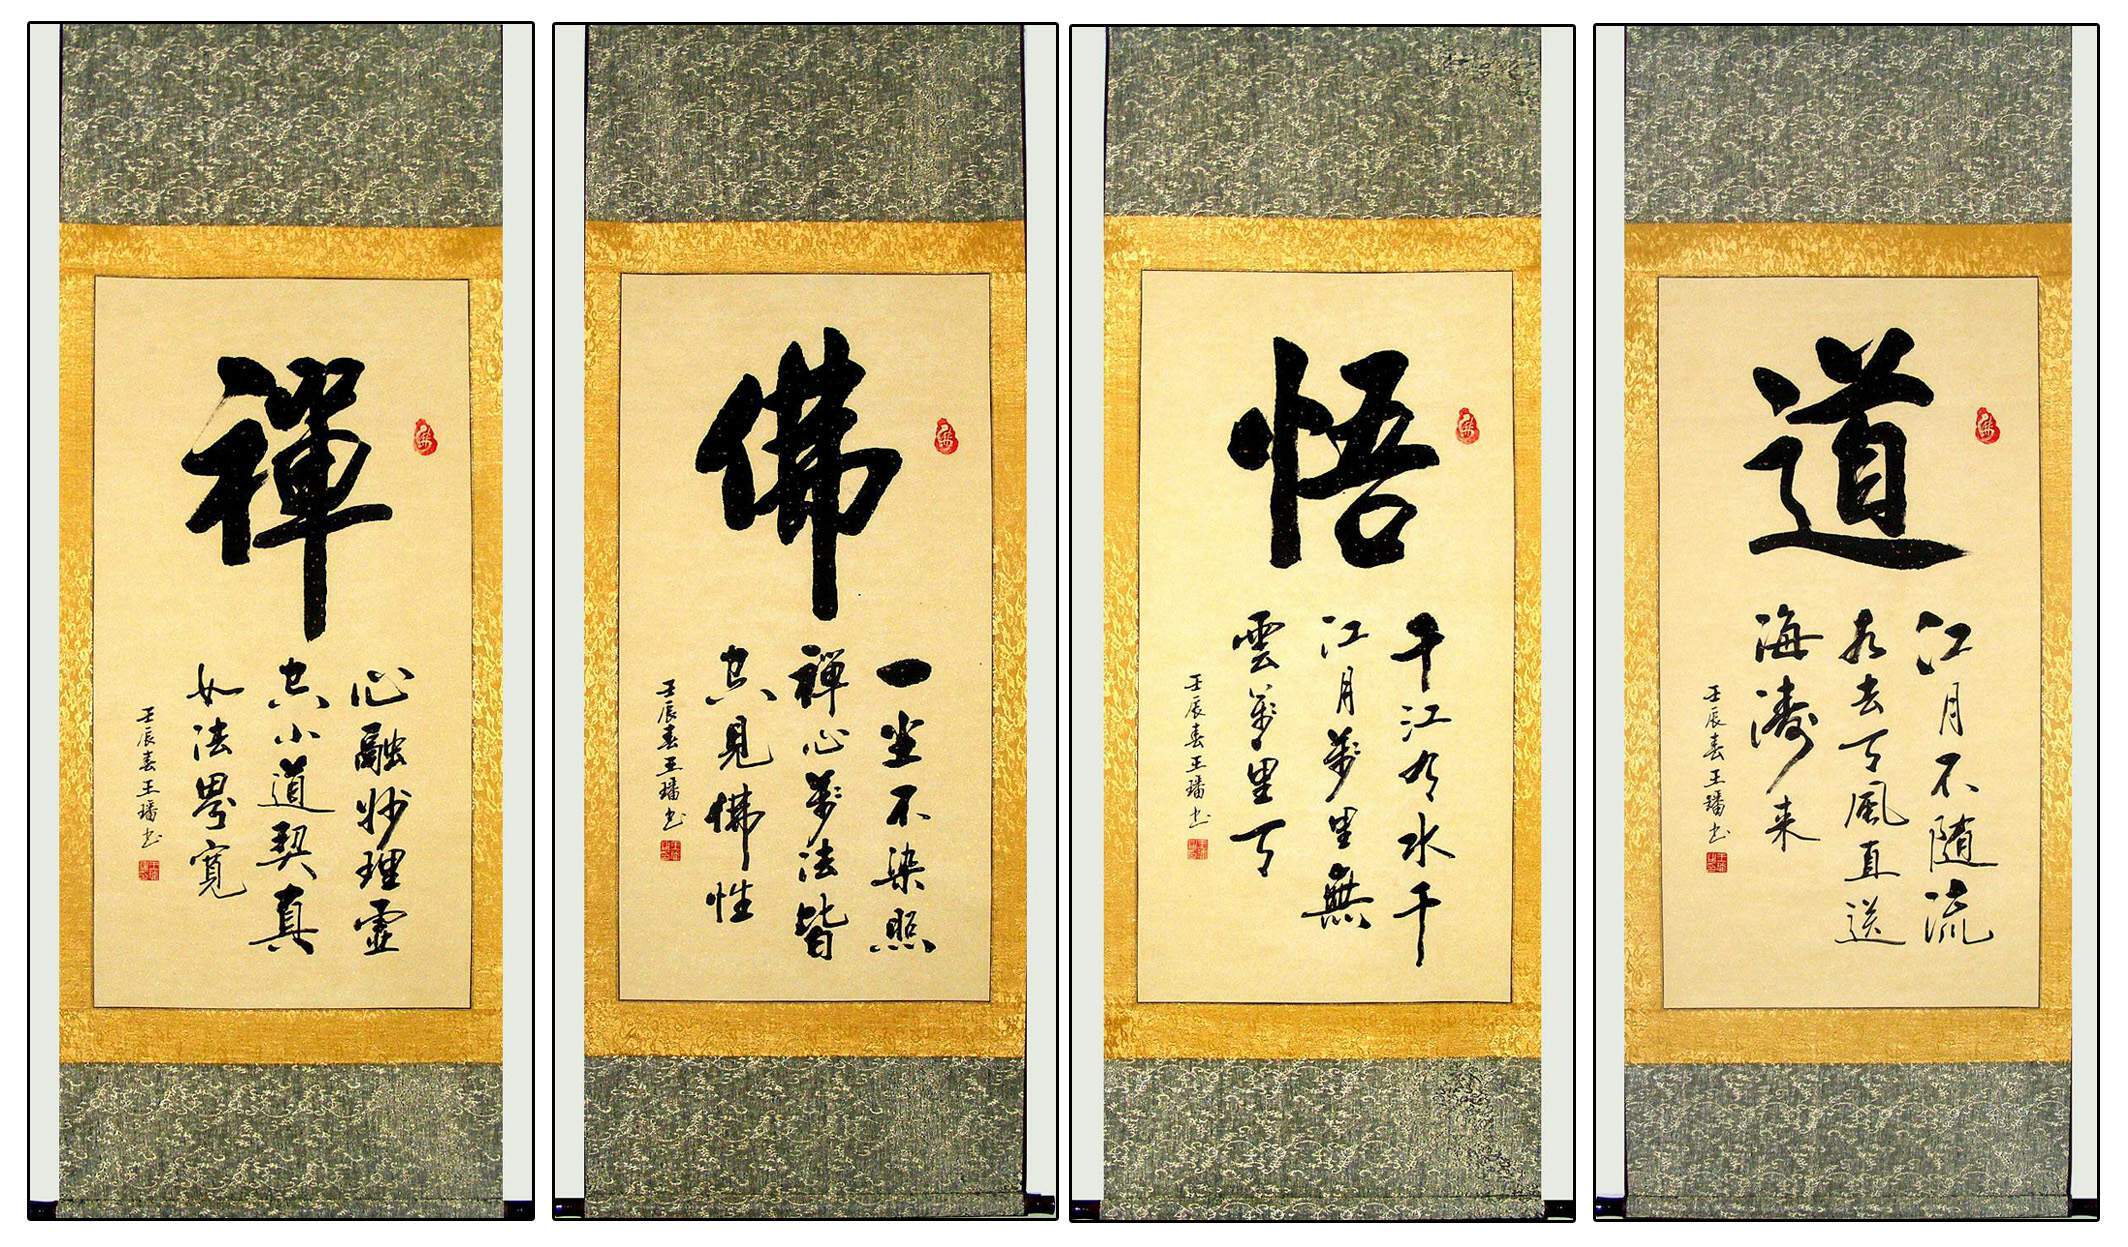 禪
心融妙理虛
空小道契真
如法界寬
壬辰春王璠书
佛
一尘不染照
禪心萬法皆
空見佛性
壬辰春王璠书
悟
千江有水千
江月萬里無
雲萬里天
壬辰春王璠书
道
江月不随流
水去天風直送
海濤来
壬辰春王璠书